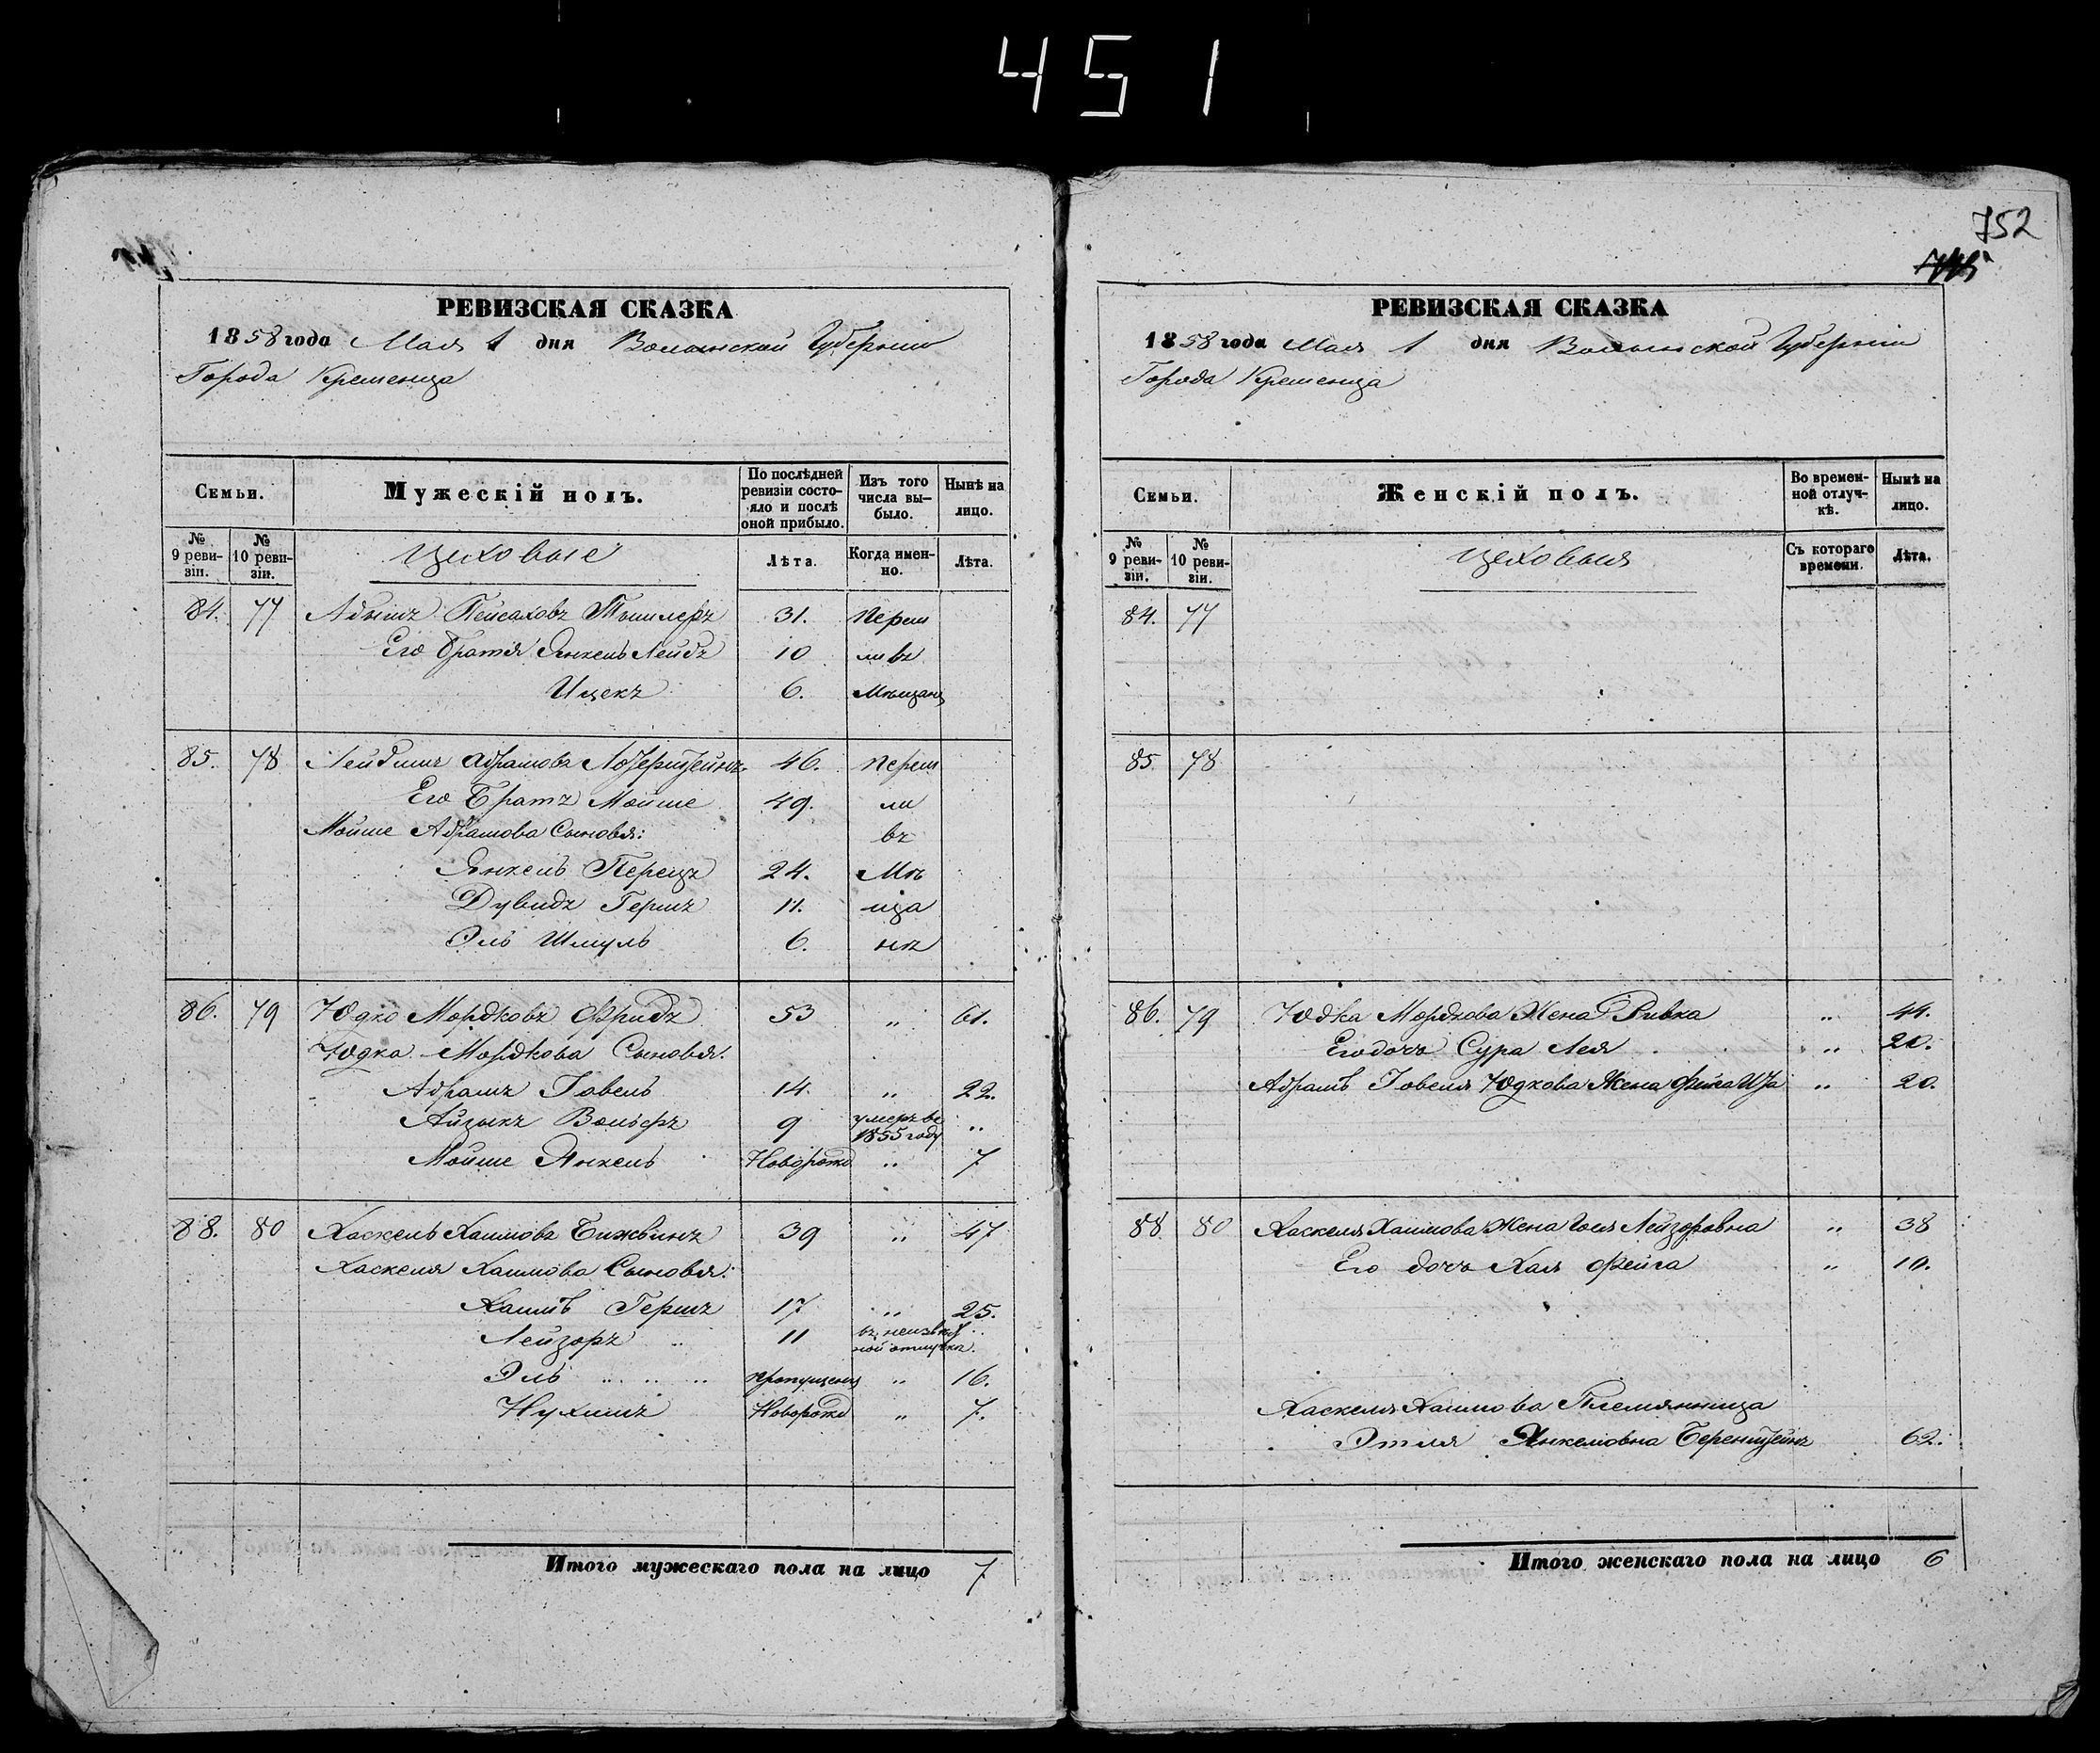 451
РЕВИЗСКАЯ СКАЗКА
1858 года Мая 1 дня Волынской Губерніи
Города Кременца
Семьи.
Мужескій полъ.
По послѣдней ревизіи состояло и послѣ оной прибыло.
Изъ того числа выбыло.
Нынѣ на лицо.
№ 9 ревизіи.
№ 10 ревизіи.
Цеховые
Лѣта.
Когда именно.
Лѣта.
84. 77 Пейсаховъ 31. Переш
Его Братья Янкель Лейбъ 10 ли въ
Ицекъ 6. Мѣщанъ
85. 78 Абрамовъ 46. Переш
Его Братъ Мойше 49. ли
Мойше Абрамова Сыновья: въ
Янкель Перецъ 24. Мѣ
Дувидъ Гершъ 11. ща
Эль Шмуль 6. нѣ
86. 79 Юдко Мордковъ Фридъ 53 „ 61.
Юдка Мордкова Сыновья:
Абрамъ Іовель 14. „ 22.
Айзыкъ Вольфъ 9 умеръ въ 1855 году „
Мойше Янкель Новорожд „ 7
88. 80 Хаскель Хаимовъ Бижвинъ 39 „ 47
Хаскеля Хаимова Сыновья:
Хаимъ Гершъ 17 „ 25.
Лейзоръ „ 11 въ неизвѣстной отлучкѣ. „
Эль „ „ „ пропущенъ „ 16.
Нухимъ Новорожд „ 7.
Итого мужескаго пола на лицо 7
752
РЕВИЗСКАЯ СКАЗКА
1858 года Мая 1 дня Волынской Губерніи
Города Кременца
Семьи.
Женскій полъ.
Во временной отлучкѣ.
Нынѣ на лицо.
№ 9 ревизіи.
№ 10 ревизіи.
Цеховыя
Съ котораго времени.
Лѣта.
84. 77
85. 78
86. 79 Юдка Мордкова Жена Ривка „ 44.
Его дочь Сура Лея „ 20.
Абрамъ Іовеля Юдкова Жена „ 20.
88. 80 Хаскеля Хаимова Жена Лейзоровна „ 38
Его дочь Хая Фейга „ 10.
Хаскеля Хаимова Племянница
Этля Янкелювна Беренштейнъ 62.
Итого женскаго пола на лицо 6